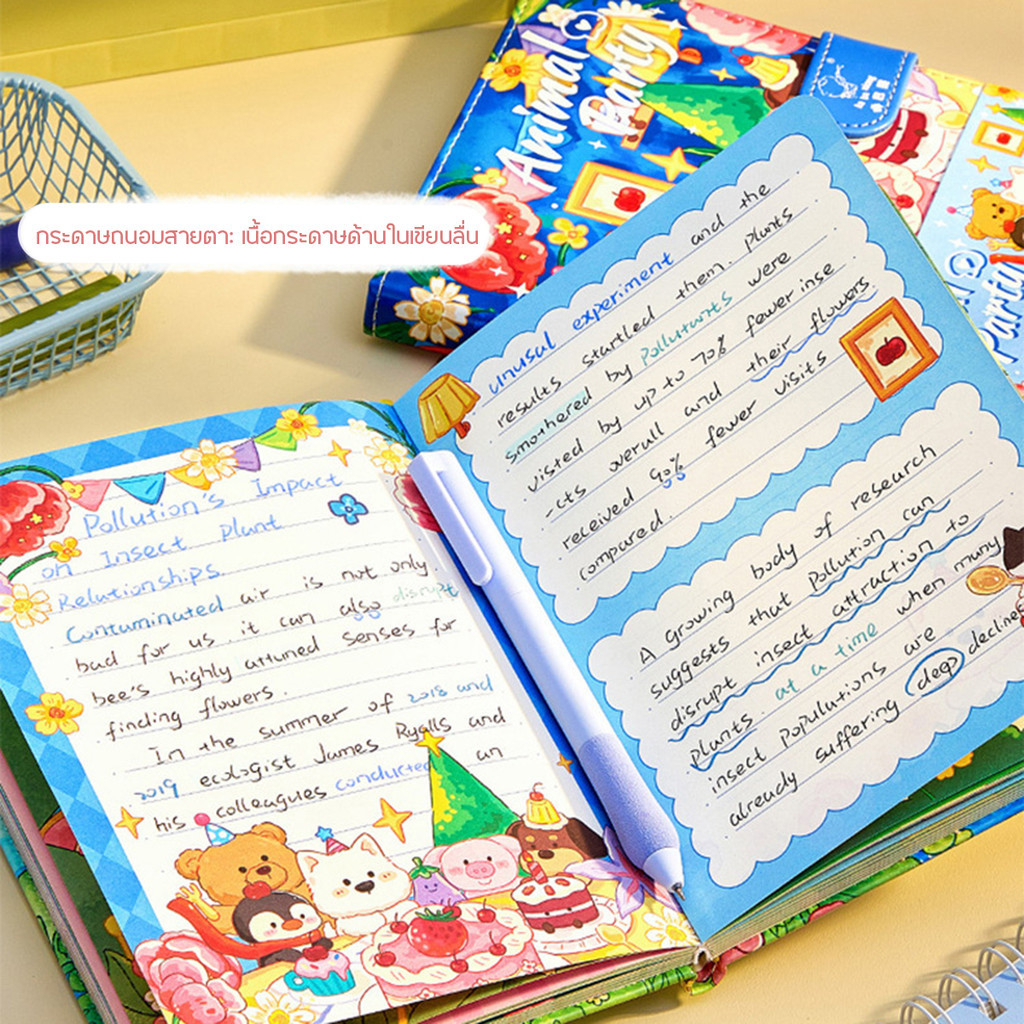 Animal
Party
กระดาษถนอมสายตา: เนื้อกระดาษด้านในเขียนลื่น
Party
Pollution's Impact
on Insect Plant
Relationships
Contaminated air is not only
bad for us. it can also disrupt
bee's highly attuned senses for
finding flowers.
In the summer of 2018 and
2019 ecologist James Ryalls and
his colleagues conducted an
unusal experiment and the
results startled them. plants
smothered by pollutants were
visted by up to 70% fewer inse
-cts overull and their flowers
received 90% fewer visits
compared.
A growing body of research
suggests that pollution can
disrupt insect attraction to
plants at a time when many
insect populutions are deep decline
already suffering